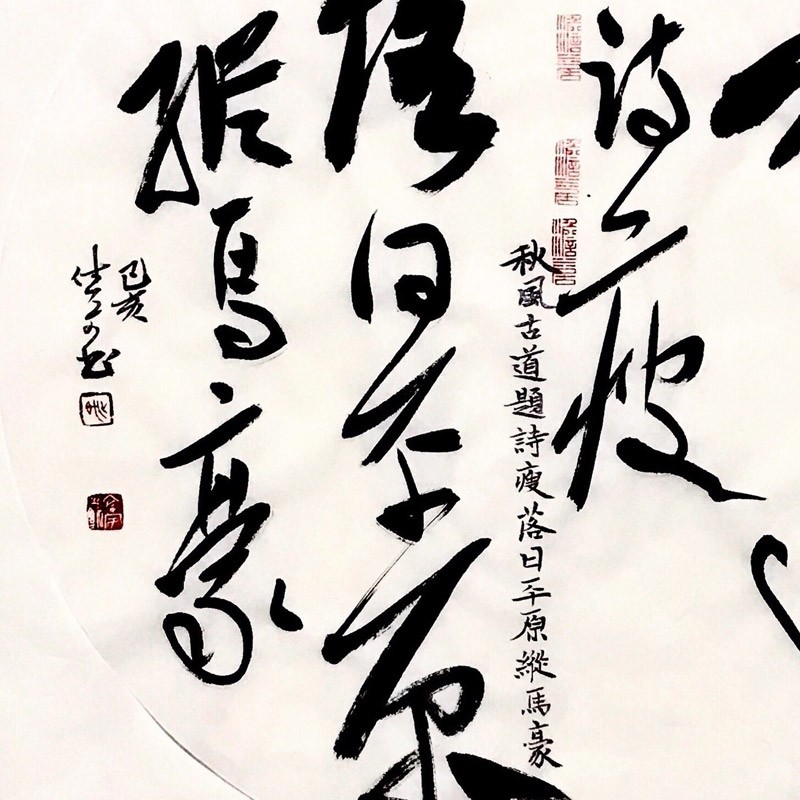 詩瘦
秋風古道題詩瘦落日平原縱馬豪
落日平原
縱馬豪
己亥
書